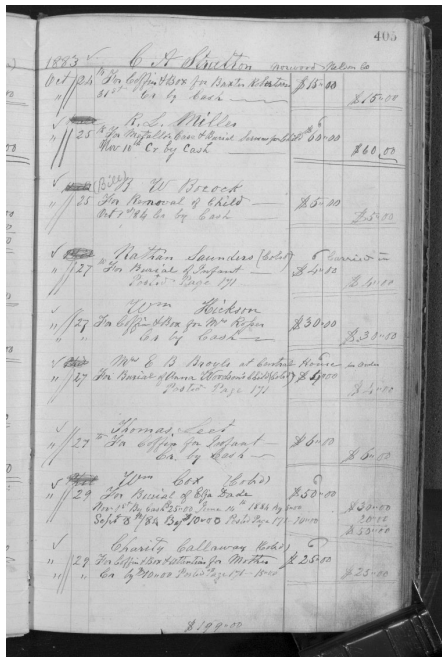 405
1883 ✓ C A Stratton Norwood
Oct // 24 th For Coffin & Box for Baxter Robertson $15-00
" // 31st Cr by Cash $15-00
✓ R. L. Miller
" // 25 th For Metallic Case & Burial $60-00
Nov 10th Cr by Cash $60.00
✓ (Bill) B W Bocock
" // 25 For Removal of Child $5-00
Oct 1st 84 Cr by Cash $5-00
✓ Nathan Saunders (Cold) Carried
" // 27 th For Burial of Infant $4-00
Posted Page 171 $4-00
✓ Wm Hickson
" // 27 For Coffin & Box for Mrs $30-00
" // " Cr by Cash $30-00
✓ Mrs E B Broyls at House
" // 27 For Burial of Anna Child (Cold)
Posted Page 171 $4-00
✓ Thomas
" // 27 th For Coffin for Infant $6-00
" // " Cr. by Cash $6-00
✓ Wm Cox (Cold)
" // 29 For Burial of Dade $50-00
Nov 1st By Cash 25-00 June 1884 $30-00
Sept 8th/84 By $10-00 Posted Page 171 10-00
$50-00
Charity Callaway (Cold)
" // 29 For Coffin & Box & attention for Mother $25-00
" // " Cr by $10-00 Posted Page 171 $25-00
$199-00